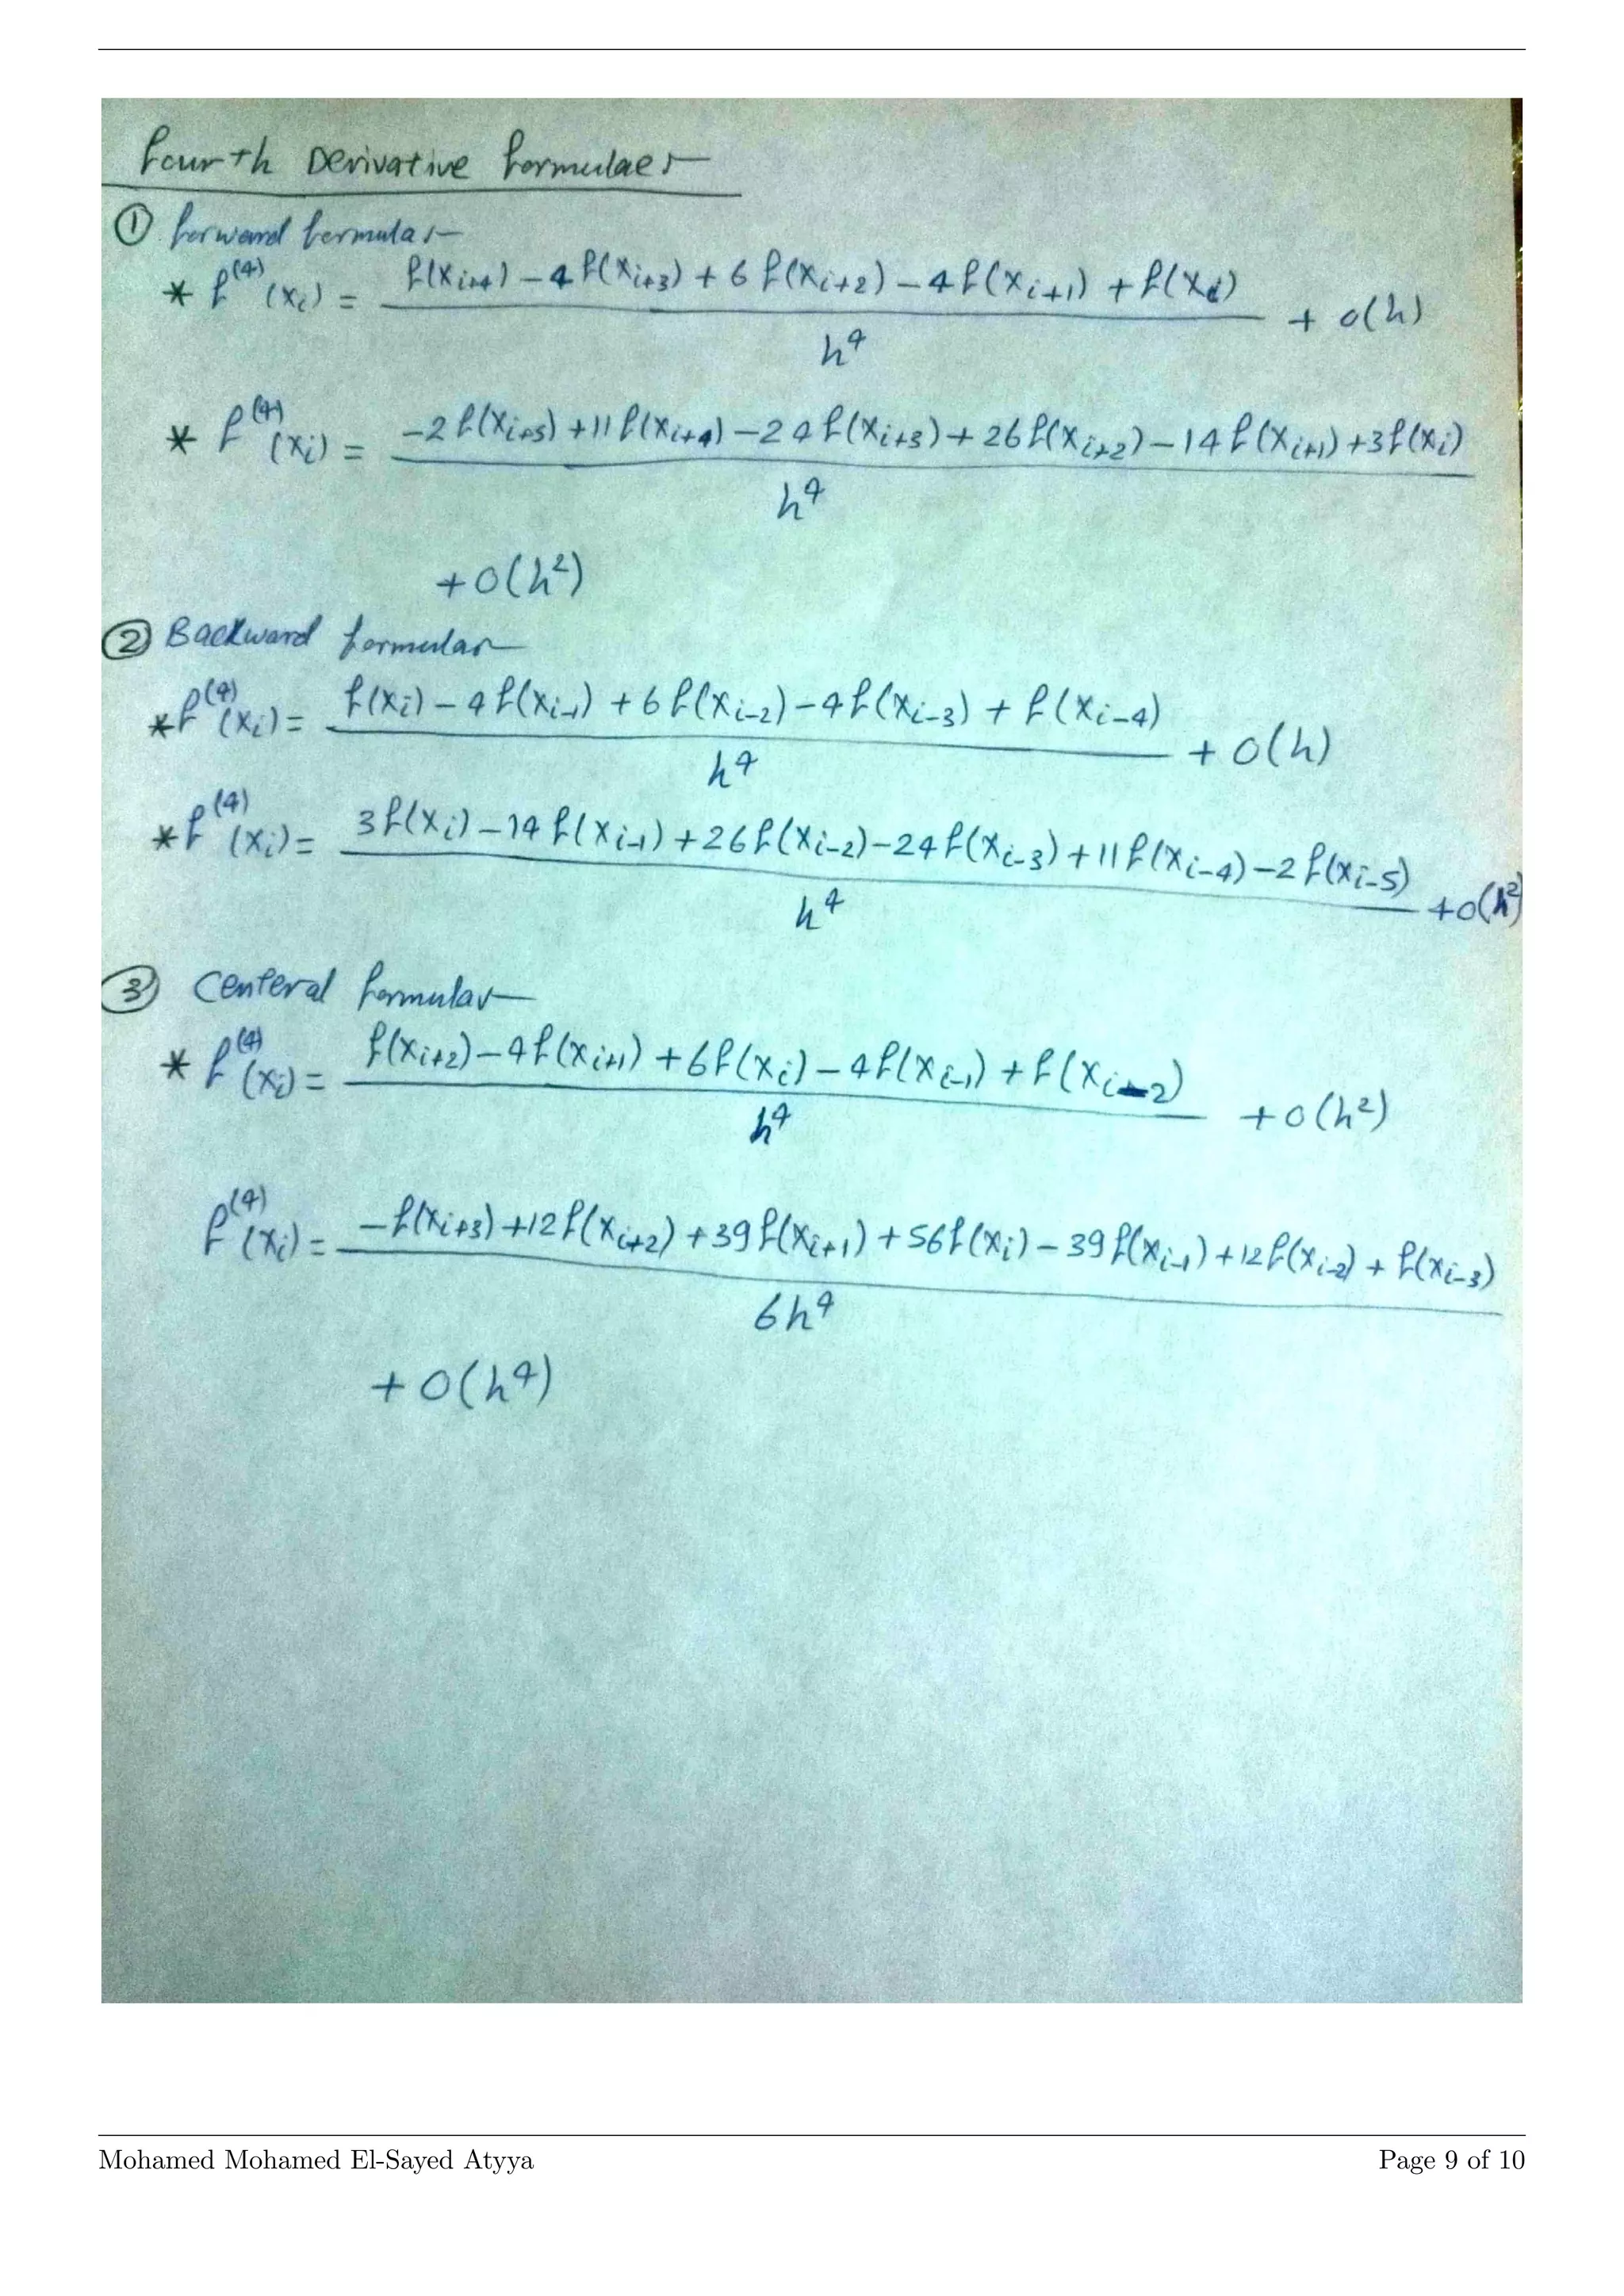 Fourth Derivative formulae:-
① forward formula:-
* f⁽⁴⁾(xᵢ) = f(xᵢ₊₄) - 4f(xᵢ₊₃) + 6f(xᵢ₊₂) - 4f(xᵢ₊₁) + f(xᵢ) + o(h)
h⁴
* f⁽⁴⁾(xᵢ) = -2f(xᵢ₊₅) + 11f(xᵢ₊₄) - 24f(xᵢ₊₃) + 26f(xᵢ₊₂) - 14f(xᵢ₊₁) + 3f(xᵢ)
h⁴
+ O(h²)
② Backward formula:-
* f⁽⁴⁾(xᵢ) = f(xᵢ) - 4f(xᵢ₋₁) + 6f(xᵢ₋₂) - 4f(xᵢ₋₃) + f(xᵢ₋₄) + O(h)
h⁴
* f⁽⁴⁾(xᵢ) = 3f(xᵢ) - 14f(xᵢ₋₁) + 26f(xᵢ₋₂) - 24f(xᵢ₋₃) + 11f(xᵢ₋₄) - 2f(xᵢ₋₅) + O(h²)
h⁴
③ Centeral formula:-
* f⁽⁴⁾(xᵢ) = f(xᵢ₊₂) - 4f(xᵢ₊₁) + 6f(xᵢ) - 4f(xᵢ₋₁) + f(xᵢ₋₂) + O(h²)
h⁴
f⁽⁴⁾(xᵢ) = -f(xᵢ₊₃) + 12f(xᵢ₊₂) + 39f(xᵢ₊₁) + 56f(xᵢ) - 39f(xᵢ₋₁) + 12f(xᵢ₋₂) + f(xᵢ₋₃)
6h⁴
+ O(h⁴)
Mohamed Mohamed El-Sayed Atyya Page 9 of 10